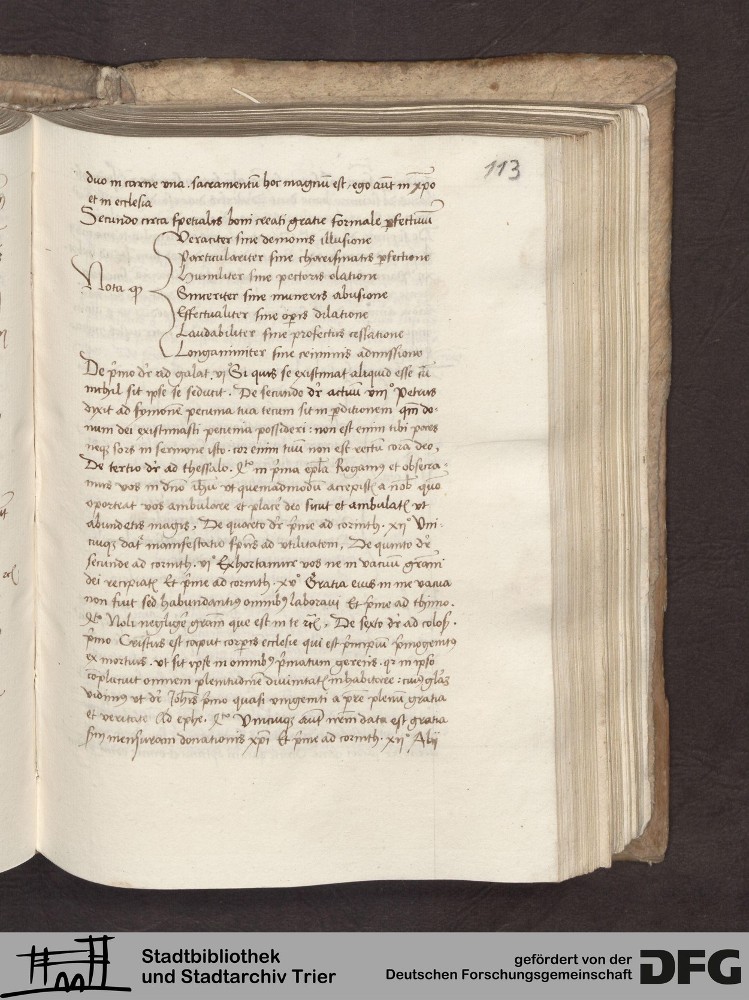 113
duo in carne vna. sacramentū hoc magnū est, ego aūt in xp̄o
et in ecclesia
Secundo circa spetialis boni creati gratie formale ꝑfectiuū
Nota ꝙ
Veraciter sine demonis illusione
Particulariter sine charismatis ꝑfectione
Humiliter sine pectoris elatione
Sinceriter sine muneris abusione
Effectualiter sine oꝑis dilatione
Laudabiliter sine profectus cessatione
Longanimiter sine criminis admissione
De p̄mo dr̄ ad galat. vi° Si quis se existimat aliquid esse cū
nichil sit ipse se seducit. De secundo dr̄ actuū viii° Petrus
dixit ad symonē pecunia tua tecum sit in ꝑditionem qm̄ do-
num dei existimasti pecunia possideri: non est enim tibi pars
neqꝫ sors in sermone isto. cor enim tuū non est rectū corā deo,
De tertio dr̄ ad thessalo. in p̄ma ep̄la Rogamus et obsecra-
mus vos in dn̄o ih̄u vt quemadmodū accepistꝭ a nob̄ quō
oporteat vos ambulare et placē deo sicut et ambulatꝭ vt
abundetis magis, De quarto dr̄ p̄me ad corinth. xii° Vni-
cuiqꝫ dat̄ manifestatio sp̄us ad vtilitatem, De quinto dr̄
secunde ad corinth. vi° Exhortamur vos ne in vacuū grām
dei recipiatꝭ Et p̄me ad corinth. xv° Gratia eius in me vacua
non fiut sed habundantiꝰ omnibꝰ laboraui Et p̄me ad thimo.
Noli negligē grām que est in te rc̄, De sexto dr̄ ad colos.
p̄mo Cristus est caput corꝑis ecclesie qui est p̄ncipiū p̄mogenitꝰ
ex mortuis. vt sit ipse in omnibꝰ p̄matum gerens. qr in ipso
cōplacuit omnem plenitudinē diuinitatꝭ inhabitare: cuiꝰ glā
vidimꝰ vt dr̄ Joh̄is p̄mo quasi vnigeniti a pr̄e plenū gratia
et veritate Ad ephe. Vnicuiqꝫ aut̄ nr̄m data est gratia
sm̄ mensuram donationis xp̄i Et p̄me ad corinth. xii° Alij
Stadtbibliothek
und Stadtarchiv Trier
gefördert von der
Deutschen Forschungsgemeinschaft
DFG